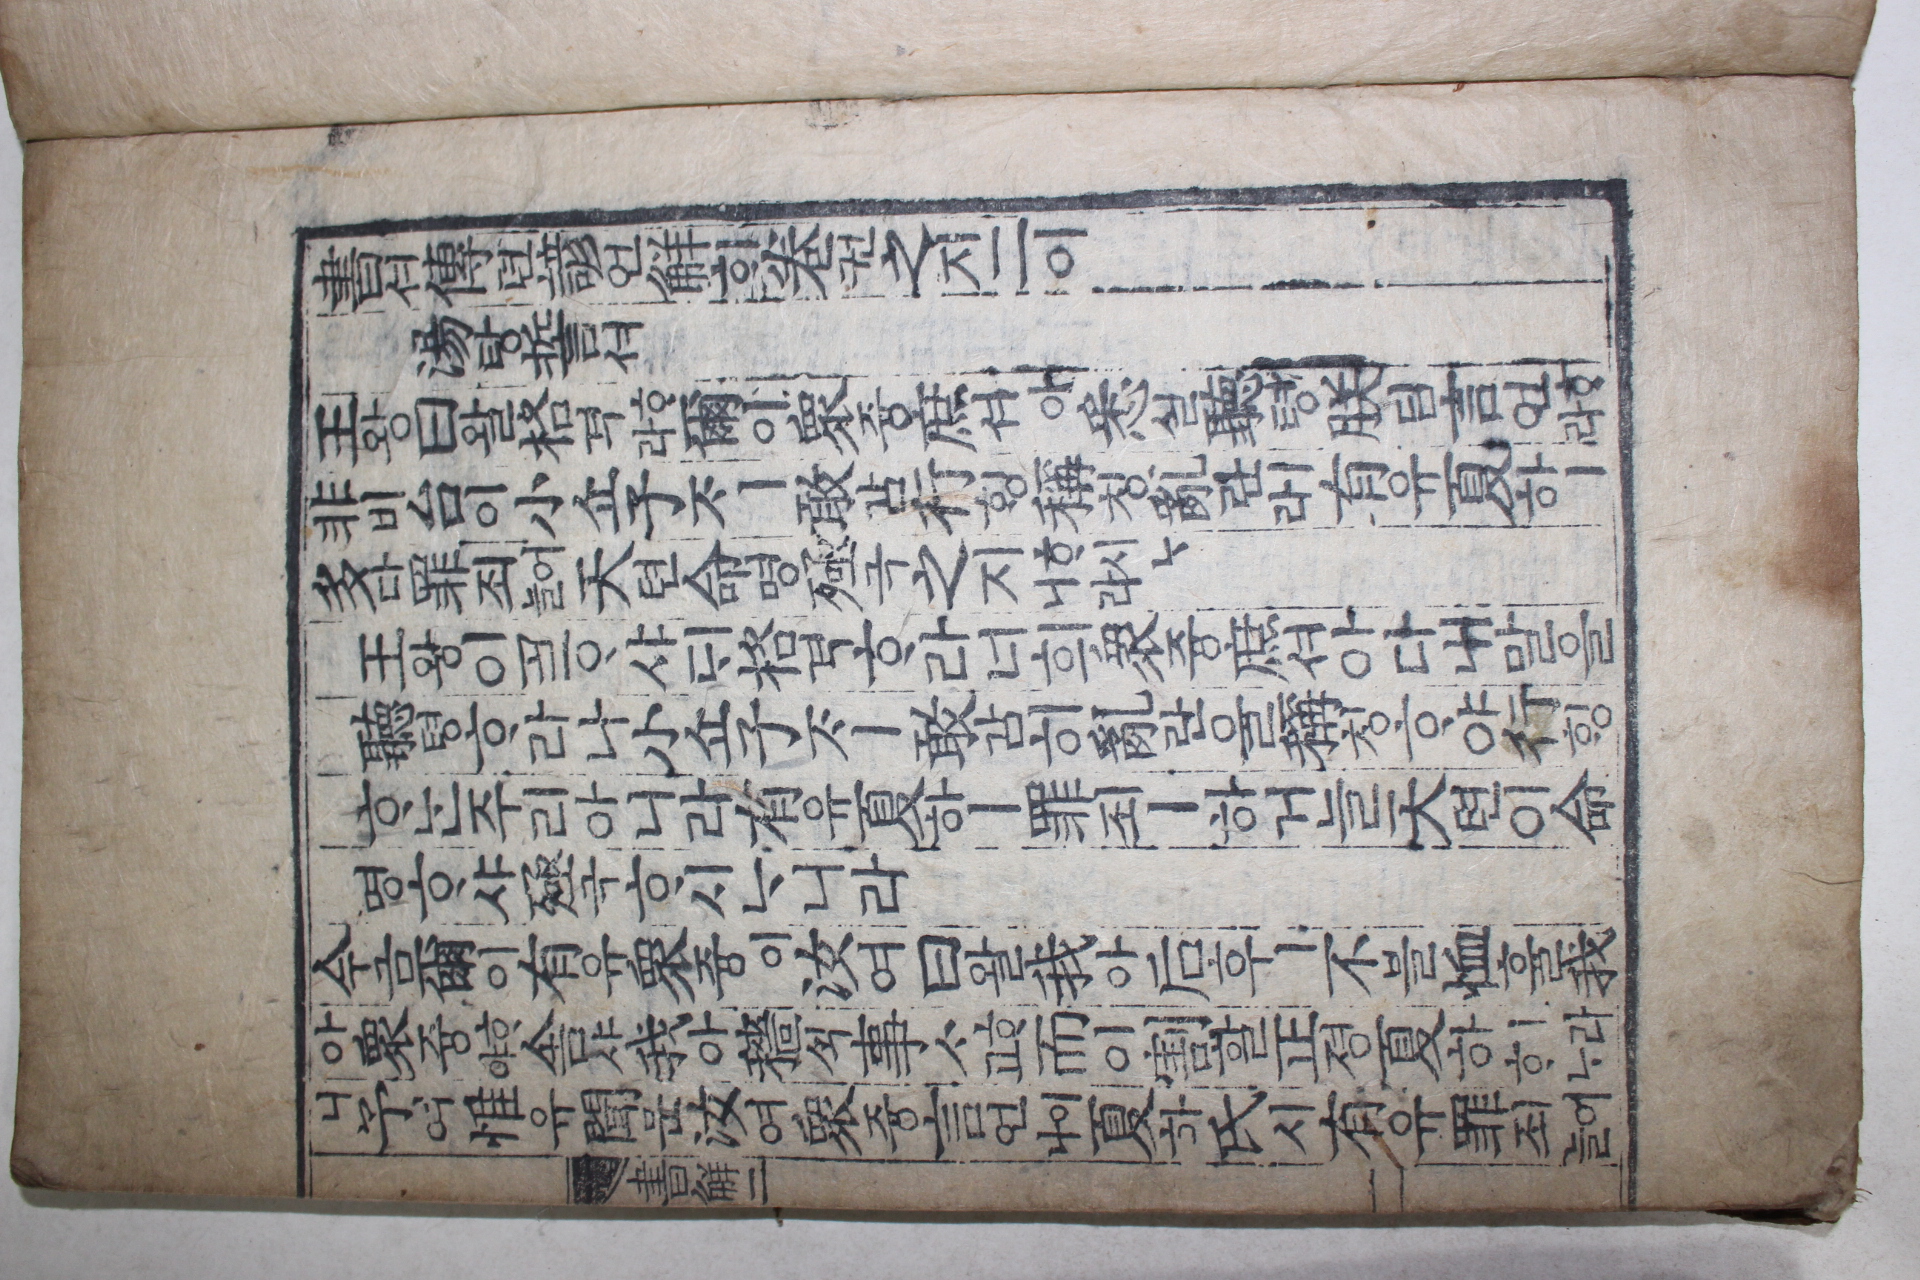 書셔傳뎐諺언解ᄒᆡ卷권之지二이
湯탕誓셔
王왕曰왈格격ᄒᆞ라爾이衆즁庶셔아悉실聽텽朕딤言언ᄒᆞ라
非비台이小쇼子ᄌᆞㅣ敢감行ᄒᆡᆼ稱칭亂란이라有유夏하ㅣ
多다罪죄ᄒᆞ늘天텬命명殛극之지ᄒᆞ시ᄂᆞ니라
王왕이ᄀᆞᆯᄋᆞ샤ᄃᆡ格격ᄒᆞ라너희衆즁庶셔아다내말을
聽텽ᄒᆞ라나小쇼子ᄌᆞㅣ敢감히亂란을稱칭ᄒᆞ야行ᄒᆡᆼ
ᄒᆞᄂᆞᆫ주리아니라有유夏하ㅣ罪죄ㅣ하거늘天텬이命
명ᄒᆞ샤殛극ᄒᆞ시ᄂᆞ니라
今금爾이有유衆즁이汝여曰왈我아后후ㅣ不블恤휼我
아衆즁ᄒᆞ야舍샤我아穡ᄉᆡᆨ事ᄉᆞ而이割할正졍夏하ᄒᆞᄂᆞ다ᄒᆞᄂᆞ
니予여惟유聞문汝여衆즁言언이나夏하氏시有유罪죄어늘
書解二
一